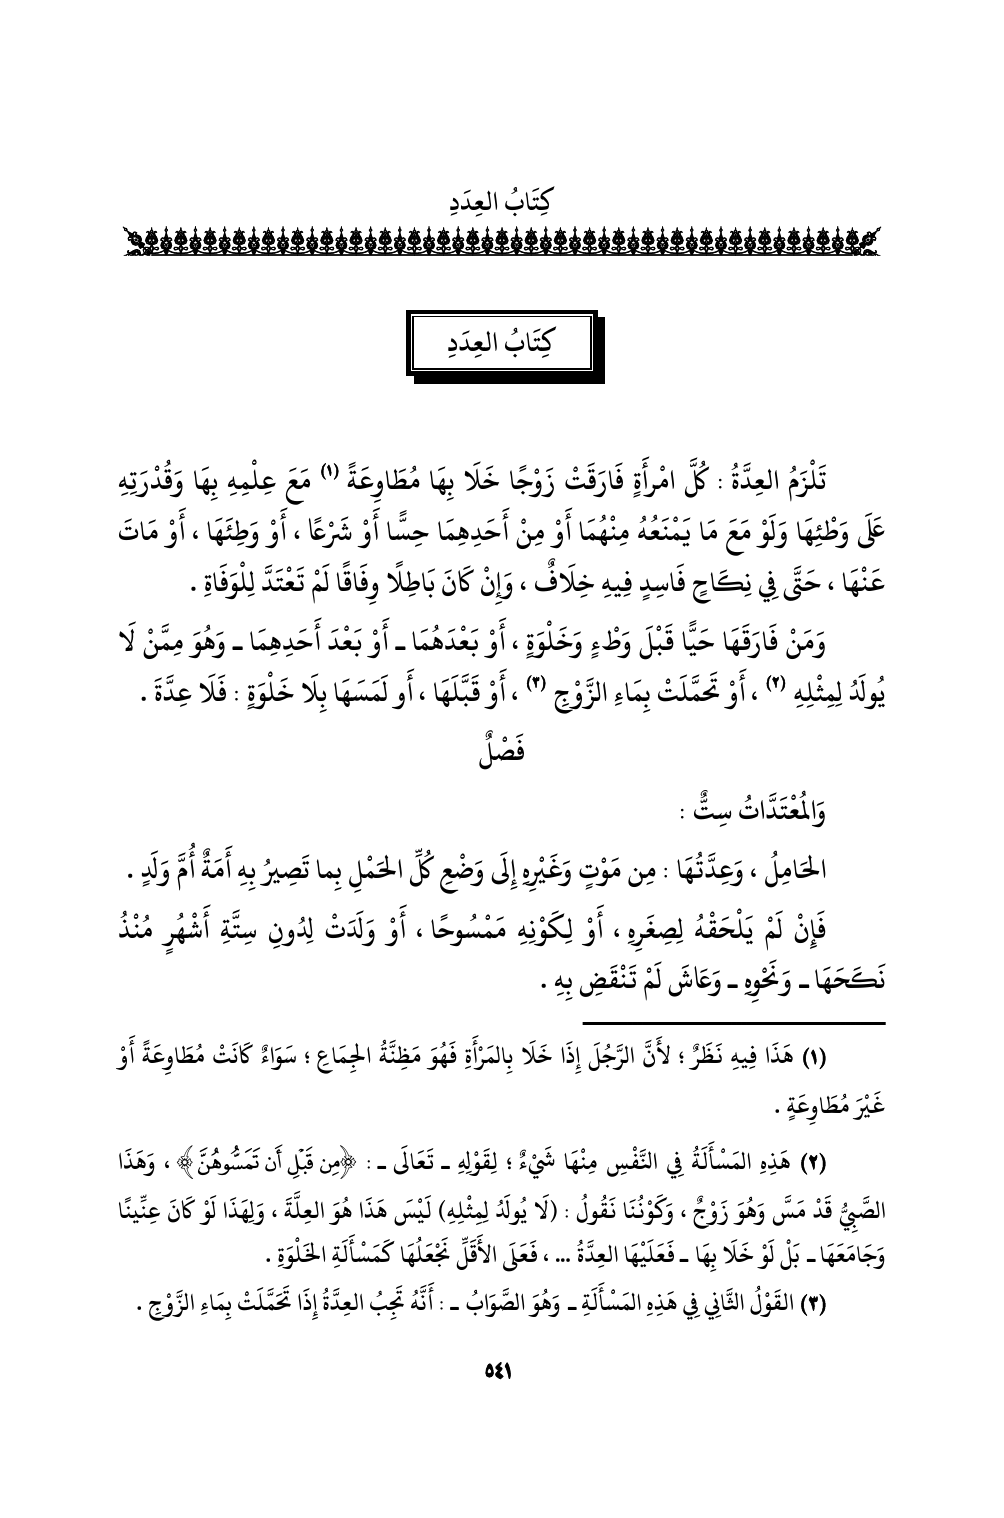 كِتَابُ العِدَدِ
كِتَابُ العِدَدِ
تَلْزَمُ العِدَّةُ : كُلَّ امْرأَةٍ فَارَقَتْ زَوْجًا خَلَا بِهَا مُطَاوِعَةً (١) مَعَ عِلْمِهِ بِهَا وَقُدْرَتِهِ
عَلَى وَطْئِهَا وَلَوْ مَعَ مَا يَمْنَعُهُ مِنْهُمَا أَوْ مِنْ أَحَدِهِمَا حِسًّا أَوْ شَرْعًا ، أَوْ وَطِئَهَا ، أَوْ مَاتَ
عَنْهَا ، حَتَّى فِي نِكَاحٍ فَاسِدٍ فِيهِ خِلَافٌ ، وَإِنْ كَانَ بَاطِلًا وِفَاقًا لَمْ تَعْتَدَّ لِلْوَفَاةِ .
وَمَنْ فَارَقَهَا حَيًّا قَبْلَ وَطْءٍ وَخَلْوَةٍ ، أَوْ بَعْدَهُمَا ـ أَوْ بَعْدَ أَحَدِهِمَا ـ وَهُوَ مِمَّنْ لَا
يُولَدُ لِمِثْلِهِ (٢) ، أَوْ تَحَمَّلَتْ بِمَاءِ الزَّوْجِ (٣) ، أَوْ قَبَّلَهَا ، أَو لَمَسَهَا بِلَا خَلْوَةٍ : فَلَا عِدَّةَ .
فَصْلٌ
وَالمُعْتَدَّاتُ سِتٌّ :
الحَامِلُ ، وَعِدَّتُهَا : مِن مَوْتٍ وَغَيْرِهِ إِلَى وَضْعِ كُلِّ الحَمْلِ بِما تَصِيرُ بِهِ أَمَةٌ أُمَّ وَلَدٍ .
فَإِنْ لَمْ يَلْحَقْهُ لِصِغَرِهِ ، أَوْ لِكَوْنِهِ مَمْسُوحًا ، أَوْ وَلَدَتْ لِدُونِ سِتَّةِ أَشْهُرٍ مُنْذُ
نَكَحَهَا ـ وَنَحْوِهِ ـ وَعَاشَ لَمْ تَنْقَضِ بِهِ .
(١) هَذَا فِيهِ نَظَرٌ ؛ لأَنَّ الرَّجُلَ إِذَا خَلَا بِالمَرْأَةِ فَهُوَ مَظِنَّةُ الجِمَاعِ ؛ سَوَاءٌ كَانَتْ مُطَاوِعَةً أَوْ
غَيْرَ مُطَاوِعَةٍ .
(٢) هَذِهِ المَسْأَلَةُ فِي النَّفْسِ مِنْهَا شَيْءٌ ؛ لِقَوْلِهِ ـ تَعَالَى ـ : ﴿مِن قَبْلِ أَن تَمَسُّوهُنَّ﴾ ، وَهَذَا
الصَّبِيُّ قَدْ مَسَّ وَهُوَ زَوْجٌ ، وَكَوْنُنَا نَقُولُ : (لَا يُولَدُ لِمِثْلِهِ) لَيْسَ هَذَا هُوَ العِلَّةَ ، وَلِهَذَا لَوْ كَانَ عِنِّينًا
وَجَامَعَهَا ـ بَلْ لَوْ خَلَا بِهَا ـ فَعَلَيْهَا العِدَّةُ ... ، فَعَلَى الأَقَلِّ نَجْعَلُهَا كَمَسْأَلَةِ الخَلْوَةِ .
(٣) القَوْلُ الثَّانِي فِي هَذِهِ المَسْأَلَةِ ـ وَهُوَ الصَّوَابُ ـ : أَنَّهُ تَجِبُ العِدَّةُ إِذَا تَحَمَّلَتْ بِمَاءِ الزَّوْجِ .
٥٤١